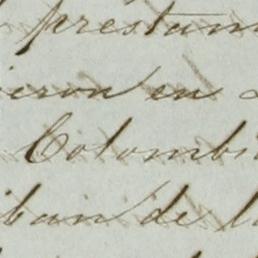 prestam
ieron en
Colombi
iban de l